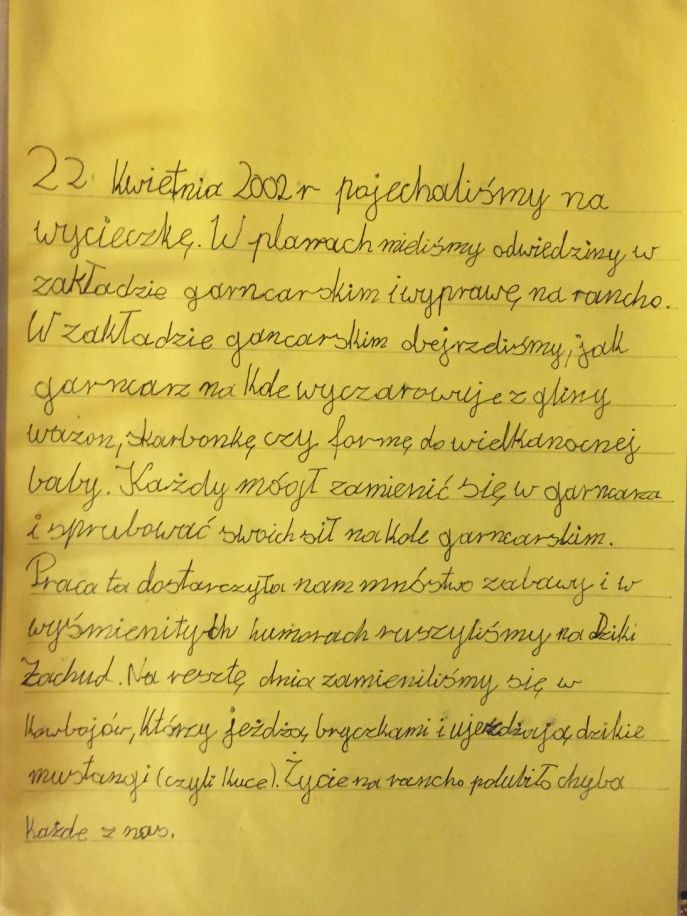 22 Kwietnia 2002 r pojechaliśmy na
wycieczkę. W planach mieliśmy odwiedziny w
zakładzie garncarskim i wyprawę na rancho.
W zakładzie gancarskim obejrzeliśmy, jak
garncarz na kole wyczarowuje z gliny
wazon, skarbonkę czy formę do wielkanocnej
baby. Każdy mógł zamienić się w garncarza
i sprubować swoich sił na kole garncarskim.
Praca ta dostarczyła nam mnóstwo zabawy i w
wyśmienitych humorach ruszyliśmy na Dziki
Zachud. Na resztę dnia zamieniliśmy się w
kowbojów, którzy jeżdżą bryczkami i ujeżdżają dzikie
mustangi (czyli kuce). Życie na rancho polubiło chyba
każde z nas.